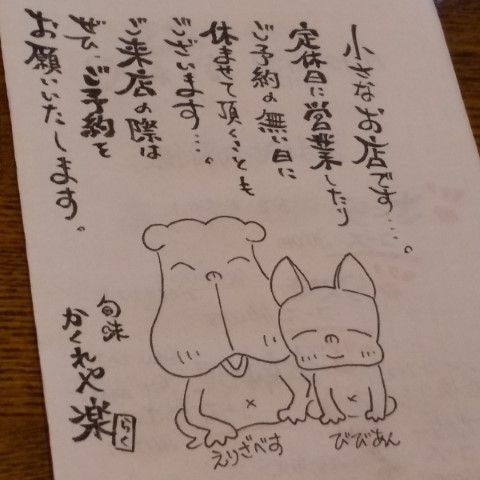 小さなお店です…。
定休日に営業したり
ご予約の無い日に
休ませて頂くことも
ございます…。
ご来店の際は
ぜひ、ご予約を
お願いいたします。
旬味
かくれや 楽
らく
えりざべす
びびあん